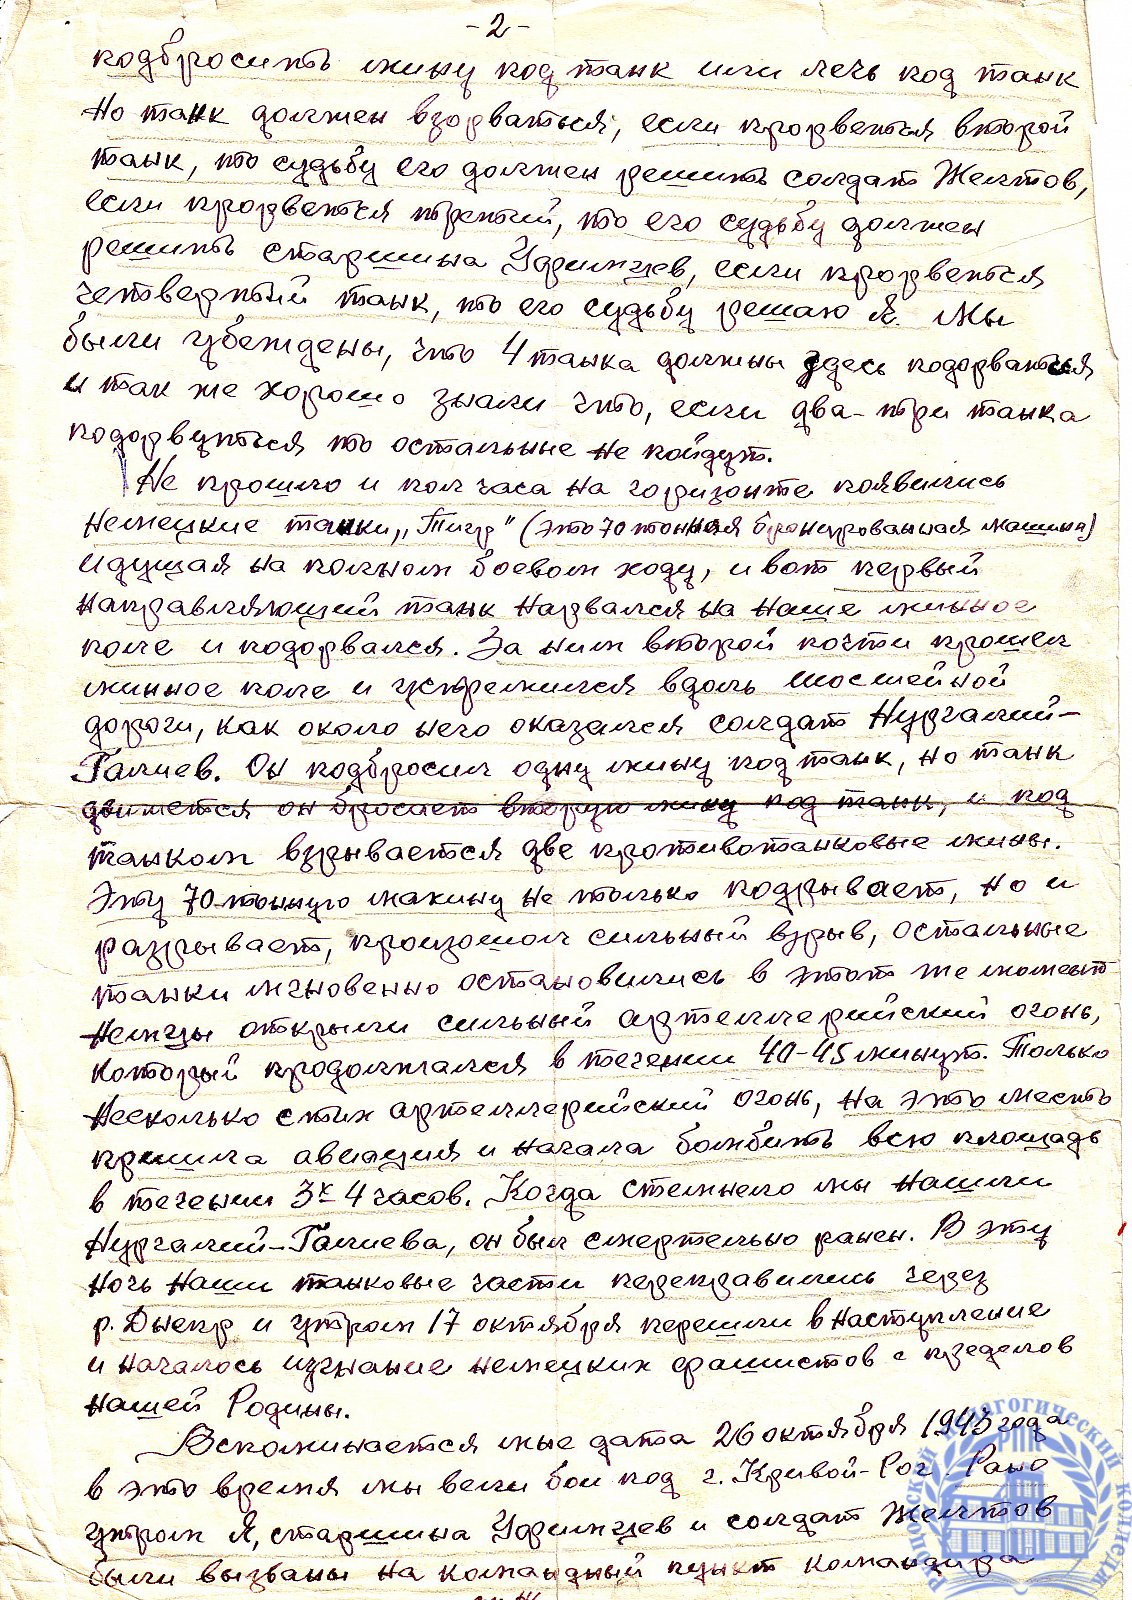 -2-
подбросить мину под танк или лечь под танк
Но танк должен взорваться, если прорвенться второй
танк, то судьбу его должен решить солдат Желтов,
если прорвенться третий, то его судьбу должен
решить старшина Уфимцев, если прорвенться
четвертый танк, то его судьбу решаю Я. Мы
были убеждены, что 4 танка должны здесь подорваться
и так же хорошо знали что, если два-три танка
подорвуться то остальные не пойдут.
Не прошло и пол часа на горизонте появились
немецкие танки, „Тигр" (это 70 тонная бронированная машина)
идущая на полном боевом ходу, и вот первый
направляющий танк нарвался на наше минное
поле и подорвался. За ним второй почти прошел
минное поле и устремился вдоль шоссейной
дороги, как около него оказался солдат Нургалий-
Галиев. Он подбросил одну мину под танк, но танк
движется он бросает вторую мину под танк, и под
танком взрывается две противотанковые мины.
Эту 70-тонную махину не только подрывает, но и
разрывает, произошол сильный взрыв, остальные
танки мгновенно остановились в этот же момент
немцы открыли сильный артеллерийский огонь,
который продолжался в течении 40-45 минут. Только
несколько стих артеллерийский огонь, на это место
пришла авиация и начала бомбить всю площадь
в течении 3х 4 часов. Когда стемнело мы нашли
Нургалий-Галиева, он был смертельно ранен. В эту
ночь наши танковые части переправились через
р. Днепр и утром 17 октября перешли в наступление
и началось изгнание немецких фашистов с пределов
нашей Родины.
Вспоминается мне дата 26 октября 1943 года
в это время мы вели бои под г. Кривой-Рог. Рано
утром Я, старшина Уфимцев и солдат Желтов
были вызваны на командный пункт командира
педагогический колледж
РПК